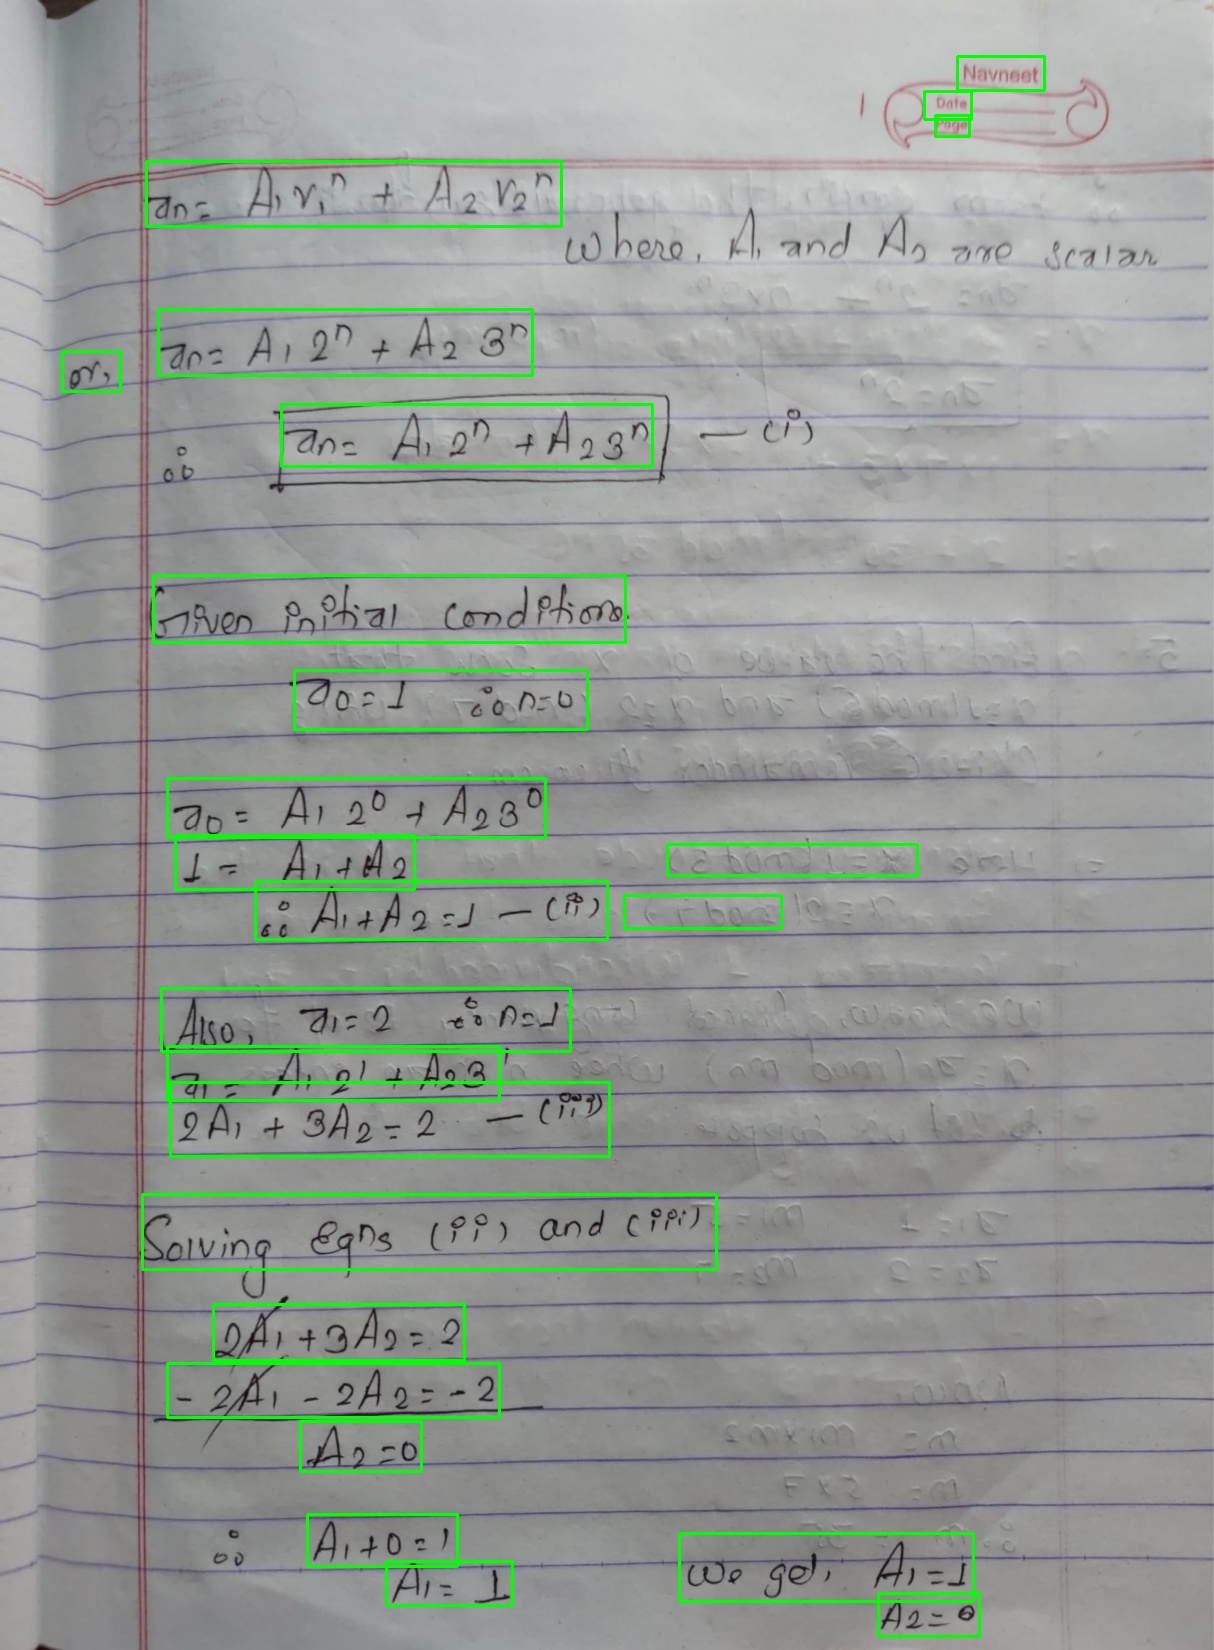 Navneet
Date
Page
an = A₁ r₁ⁿ + A₂ r₂ⁿ
Where, A₁ and A₂ are scalar
or, an = A₁ 2ⁿ + A₂ 3ⁿ
∴ an = A₁ 2ⁿ + A₂ 3ⁿ — (i)
Given initial conditions.
a₀ = 1 ∴ n=0
a₀ = A₁ 2⁰ + A₂ 3⁰
1 = A₁ + A₂
∴ A₁ + A₂ = 1 — (ii)
Also, a₁ = 2 ∴ n=1
a₁ = A₁ 2¹ + A₂ 3¹
2A₁ + 3A₂ = 2 — (iii)
Solving Eqns (ii) and (iii)
2A₁ + 3A₂ = 2
- 2A₁ - 2A₂ = -2
A₂ = 0
∴ A₁ + 0 = 1
A₁ = 1
We get, A₁ = 1
A₂ = 0